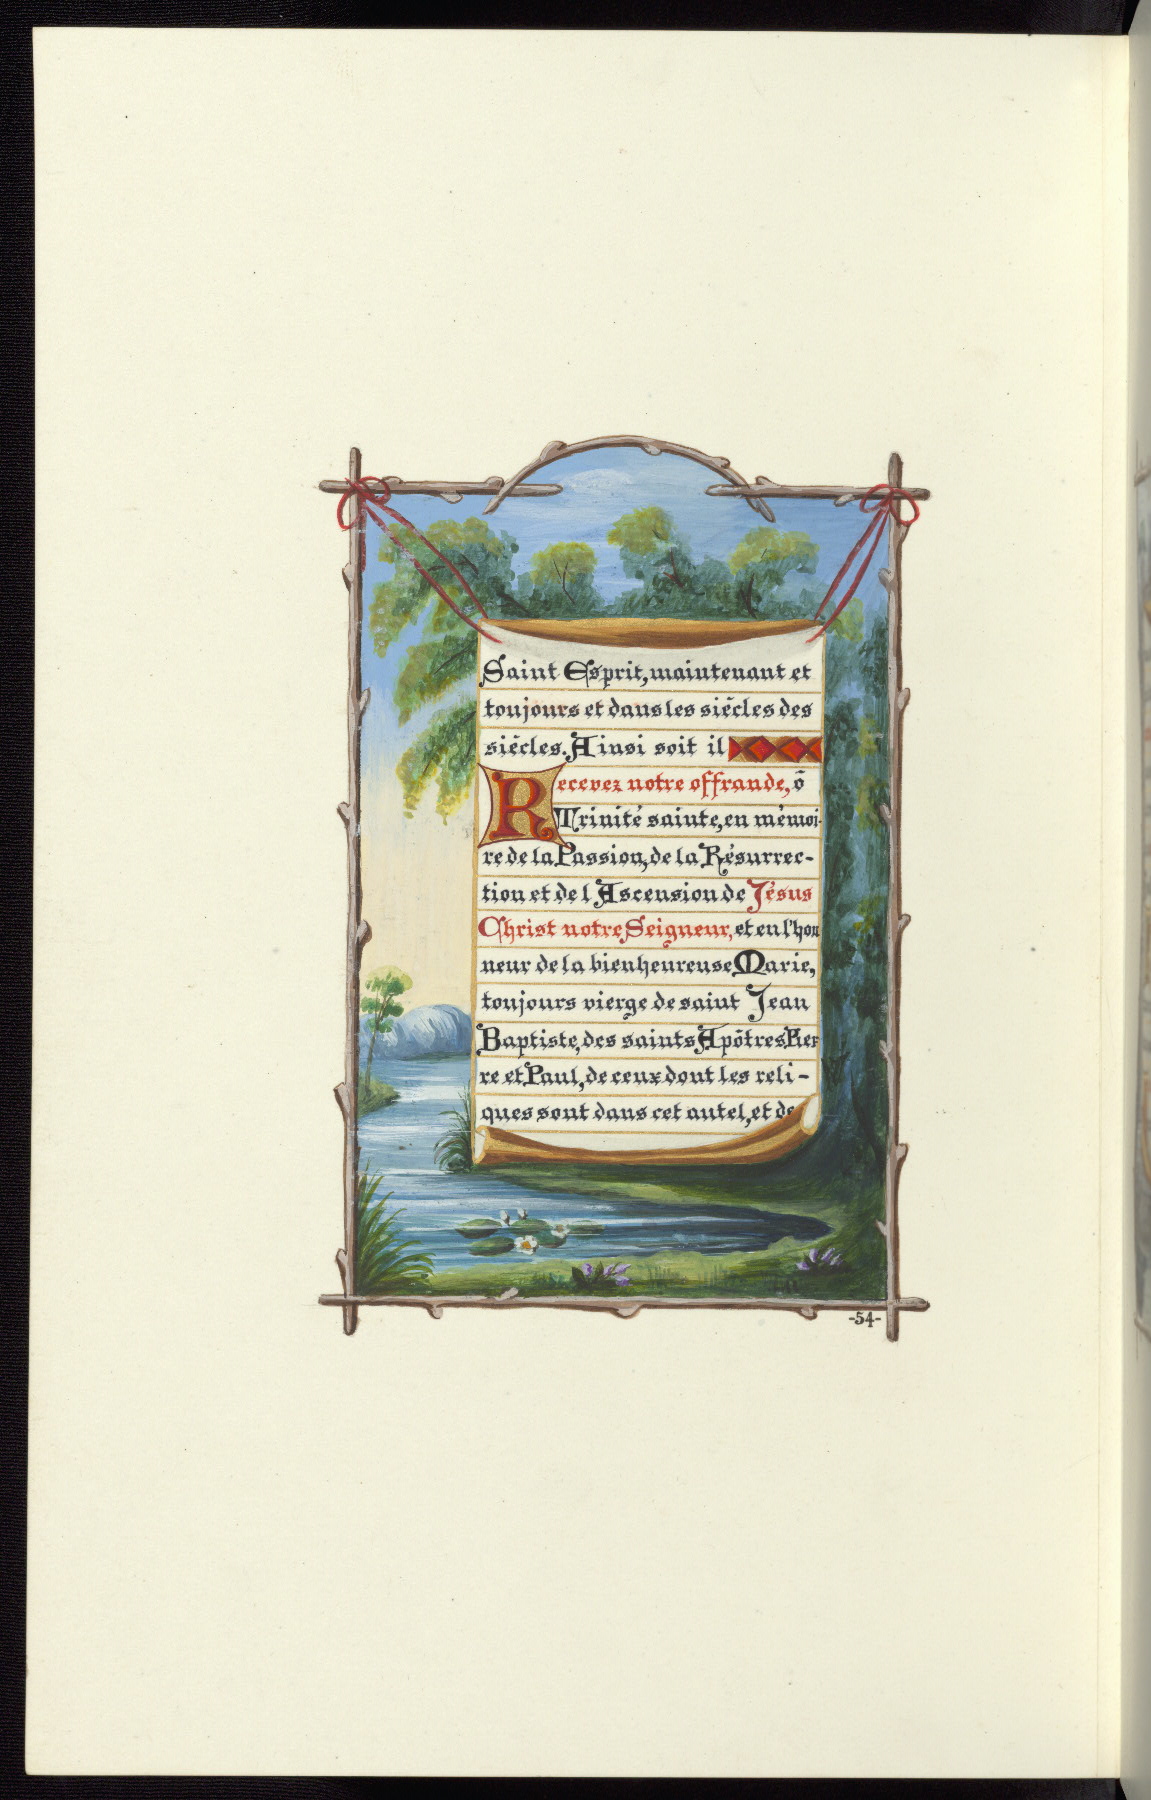 Saint Esprit, maintenant et
toujours et dans les siècles des
siècles. Ainsi soit il
Recevez notre offrande, ô
Trinité sainte, en mémoi-
re de la Passion, de la Résurrec-
tion et de l Ascension de Jésus
Christ notre Seigneur, et en l'hon
neur de la bienheureuse Marie,
toujours vierge de saint Jean
Baptiste, des saints Apôtres Pier
re et Paul, de ceux dont les reli-
ques sont dans cet autel, et de
-54-